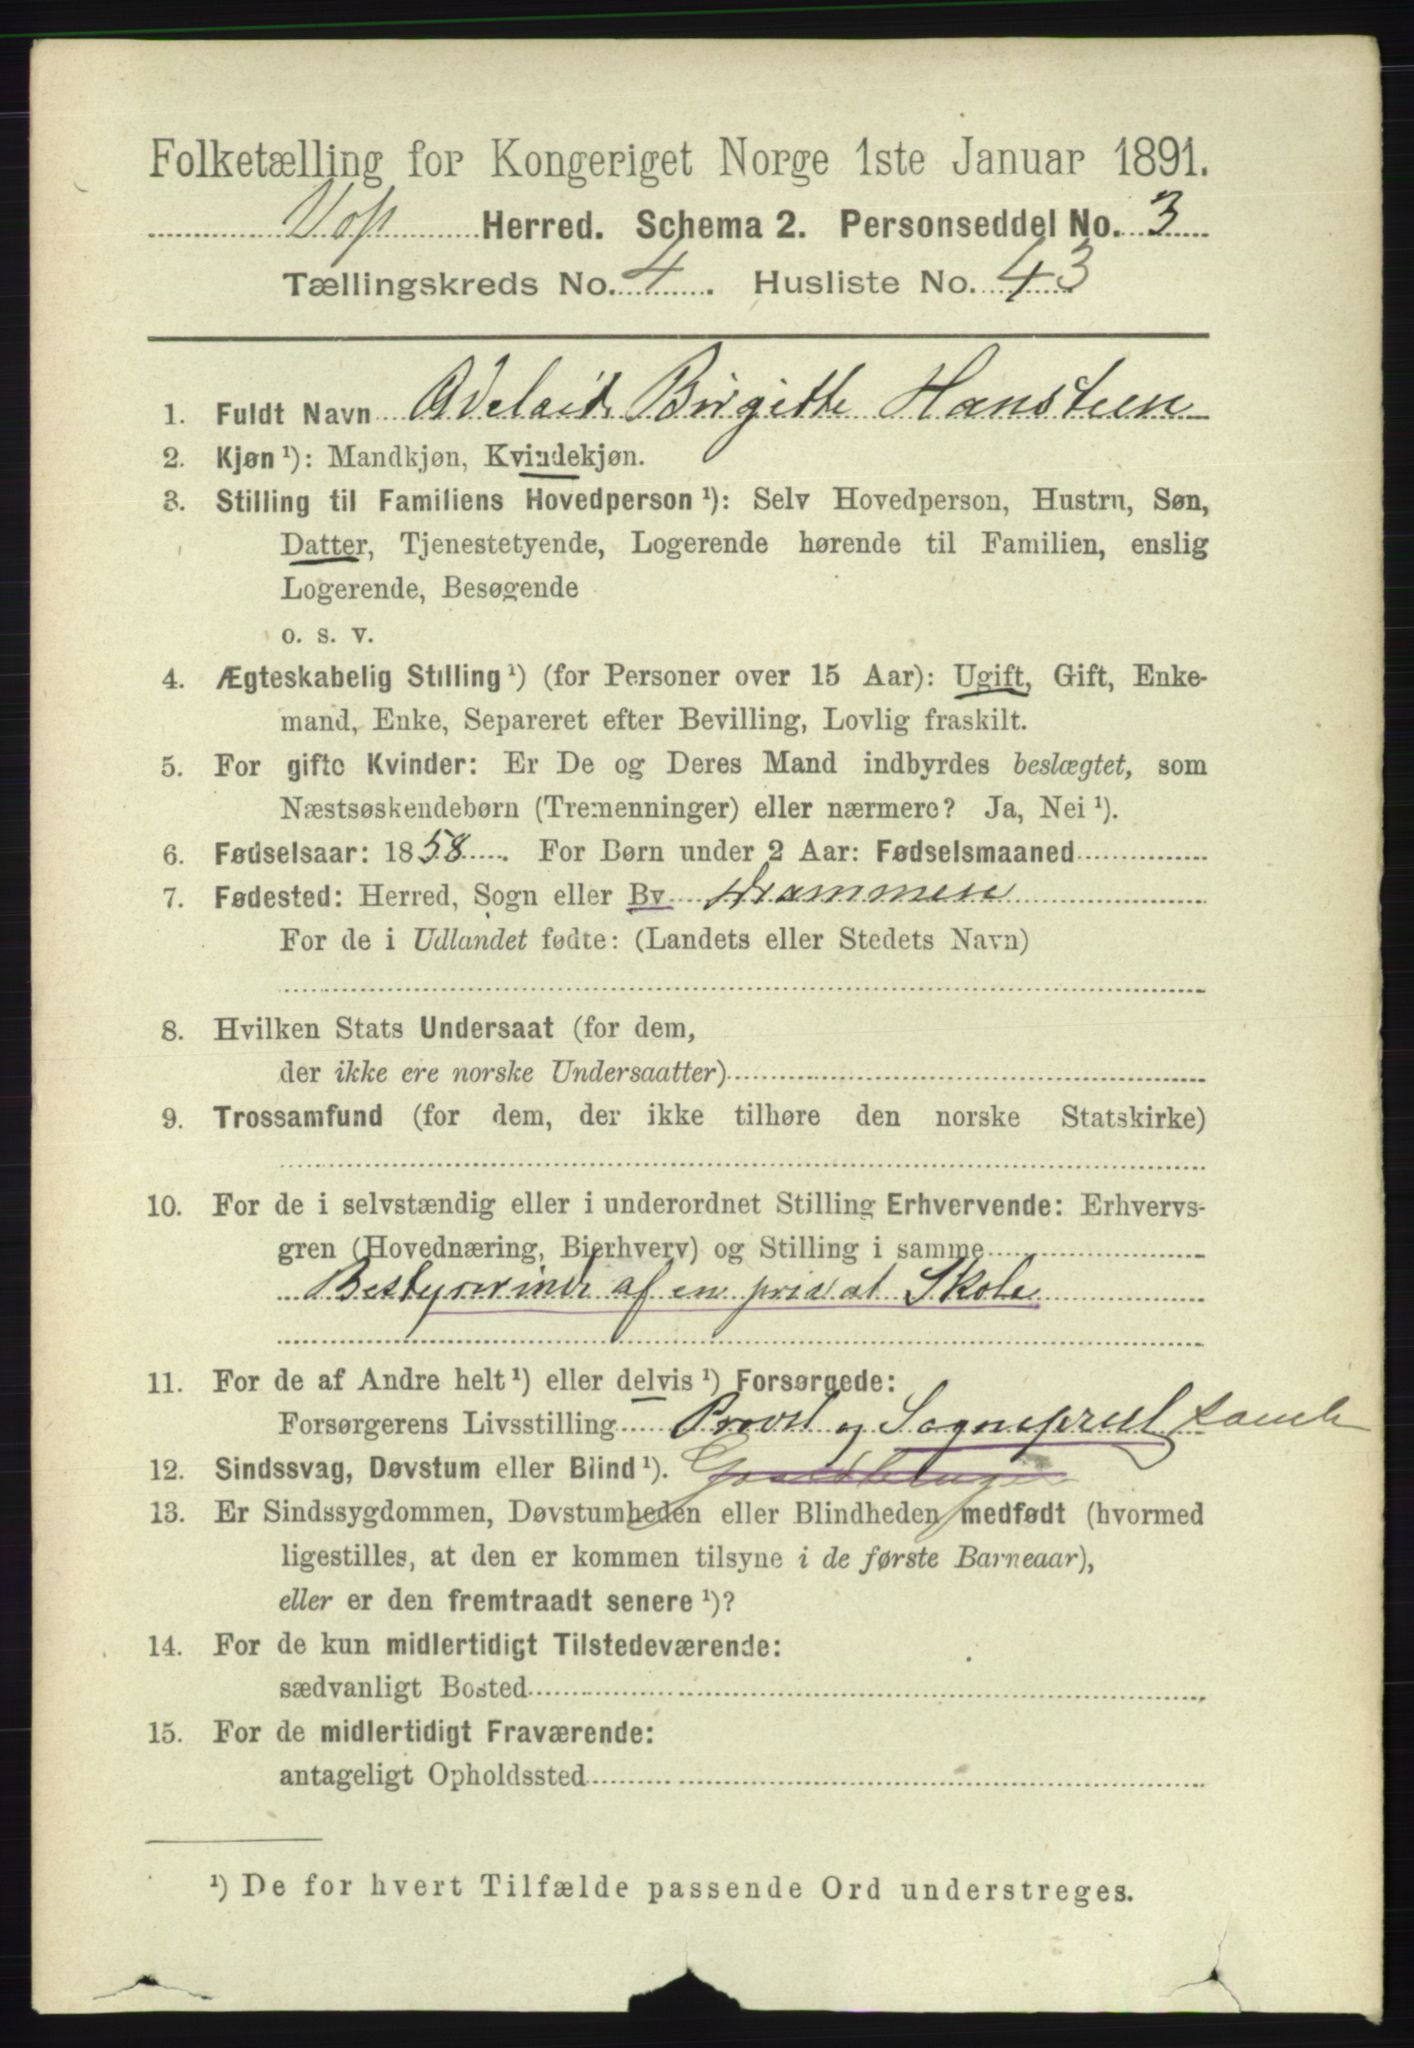 Folketælling for Kongeriget Norge 1ste Januar 1891.
Voss Herred. Schema 2. Personseddel No. 3
Tællingskreds No. 4. Husliste No. 43
1. Fuldt Navn Adelaide Birgitte Hansteen
2. Kjøn ¹): Mandkjøn, Kvindekjøn.
3. Stilling til Familiens Hovedperson ¹): Selv Hovedperson, Hustru, Søn,
Datter, Tjenestetyende, Logerende hørende til Familien, enslig
Logerende, Besøgende
o. s. v.
4. Ægteskabelig Stilling ¹) (for Personer over 15 Aar): Ugift, Gift, Enke-
mand, Enke, Separeret efter Bevilling, Lovlig fraskilt.
5. For gifte Kvinder: Er De og Deres Mand indbyrdes beslægtet, som
Næstsøskendebørn (Tremenninger) eller nærmere? Ja, Nei ¹).
6. Fødselsaar: 1858. For Børn under 2 Aar: Fødselsmaaned
7. Fødested: Herred, Sogn eller By Drammen
For de i Udlandet fødte: (Landets eller Stedets Navn)
8. Hvilken Stats Undersaat (for dem,
der ikke ere norske Undersaatter)
9. Trossamfund (for dem, der ikke tilhøre den norske Statskirke)
10. For de i selvstændig eller i underordnet Stilling Erhvervende: Erhvervs-
gren (Hovednæring, Bierhverv) og Stilling i samme
Bestyrerinde af en privat Skole
11. For de af Andre helt ¹) eller delvis ¹) Forsørgede:
Forsørgerens Livsstilling Provst og Sogneprest samt
12. Sindssvag, Døvstum eller Blind ¹). Gaardbruger
13. Er Sindssygdommen, Døvstumheden eller Blindheden medfødt (hvormed
ligestilles, at den er kommen tilsyne i de første Barneaar),
eller er den fremtraadt senere ¹)?
14. For de kun midlertidigt Tilstedeværende:
sædvanligt Bosted
15. For de midlertidigt Fraværende:
antageligt Opholdssted
¹) De for hvert Tilfælde passende Ord understreges.